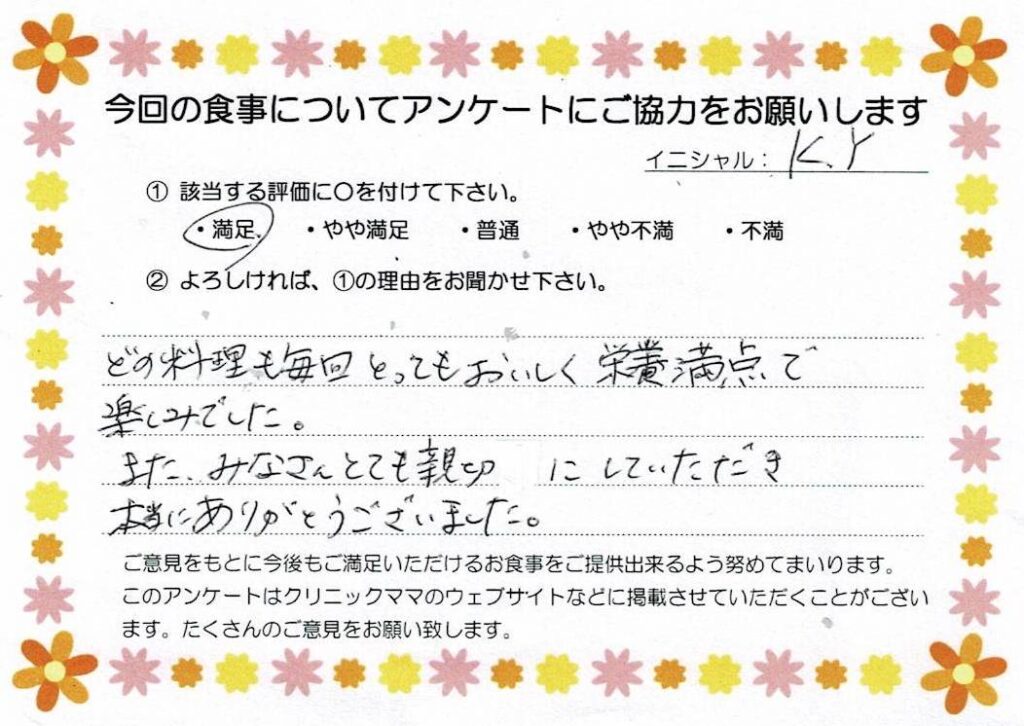 今回の食事についてアンケートにご協力をお願いします
イニシャル： K.Y
① 該当する評価に〇を付けて下さい。
・満足 ・やや満足 ・普通 ・やや不満 ・不満
② よろしければ、①の理由をお聞かせ下さい。
どの料理も毎回とってもおいしく栄養満点で
楽しみでした。
また、みなさんとても親切にしていただき
本当にありがとうございました。
ご意見をもとに今後もご満足いただけるお食事をご提供出来るよう努めてまいります。
このアンケートはクリニックママのウェブサイトなどに掲載させていただくことがござい
ます。たくさんのご意見をお願い致します。